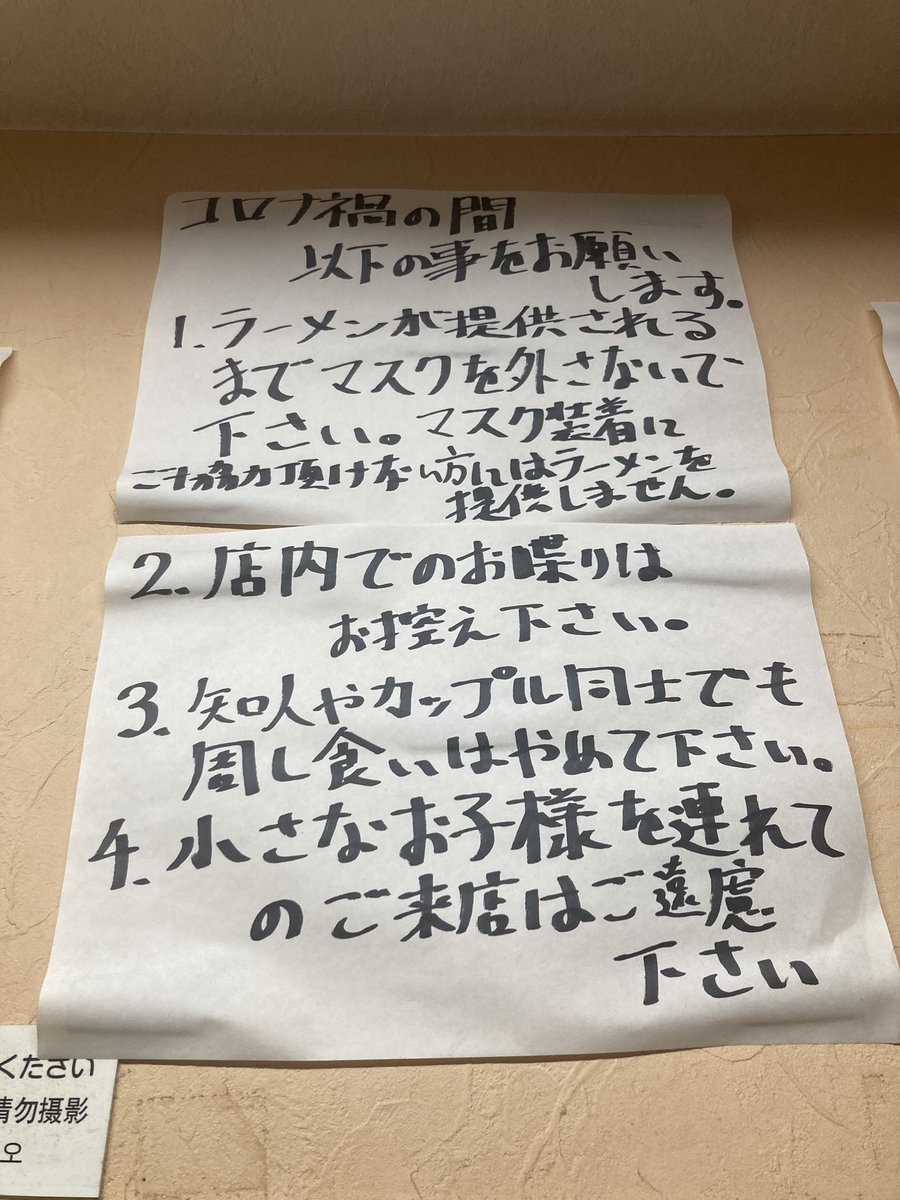 コロナ禍の間
以下の事をお願い
します。
1.ラーメンが提供される
までマスクを外さないで
下さい。マスク装着に
ご協力頂けない方にはラーメンを
提供しません。
2.店内でのお喋りは
お控え下さい。
3.知人やカップル同士でも
周し食いはやめて下さい。
4.小さなお子様を連れて
のご来店はご遠慮
下さい
ください
請勿摄影
오